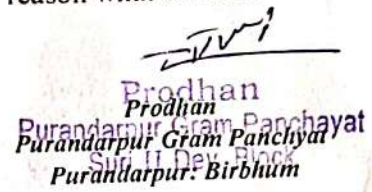 reason
Prodhan
Prodhan
Purandarpur Gram Panchayat
Purandarpur Gram Panchyat
Suri II Dev. Block
Purandarpur: Birbhum